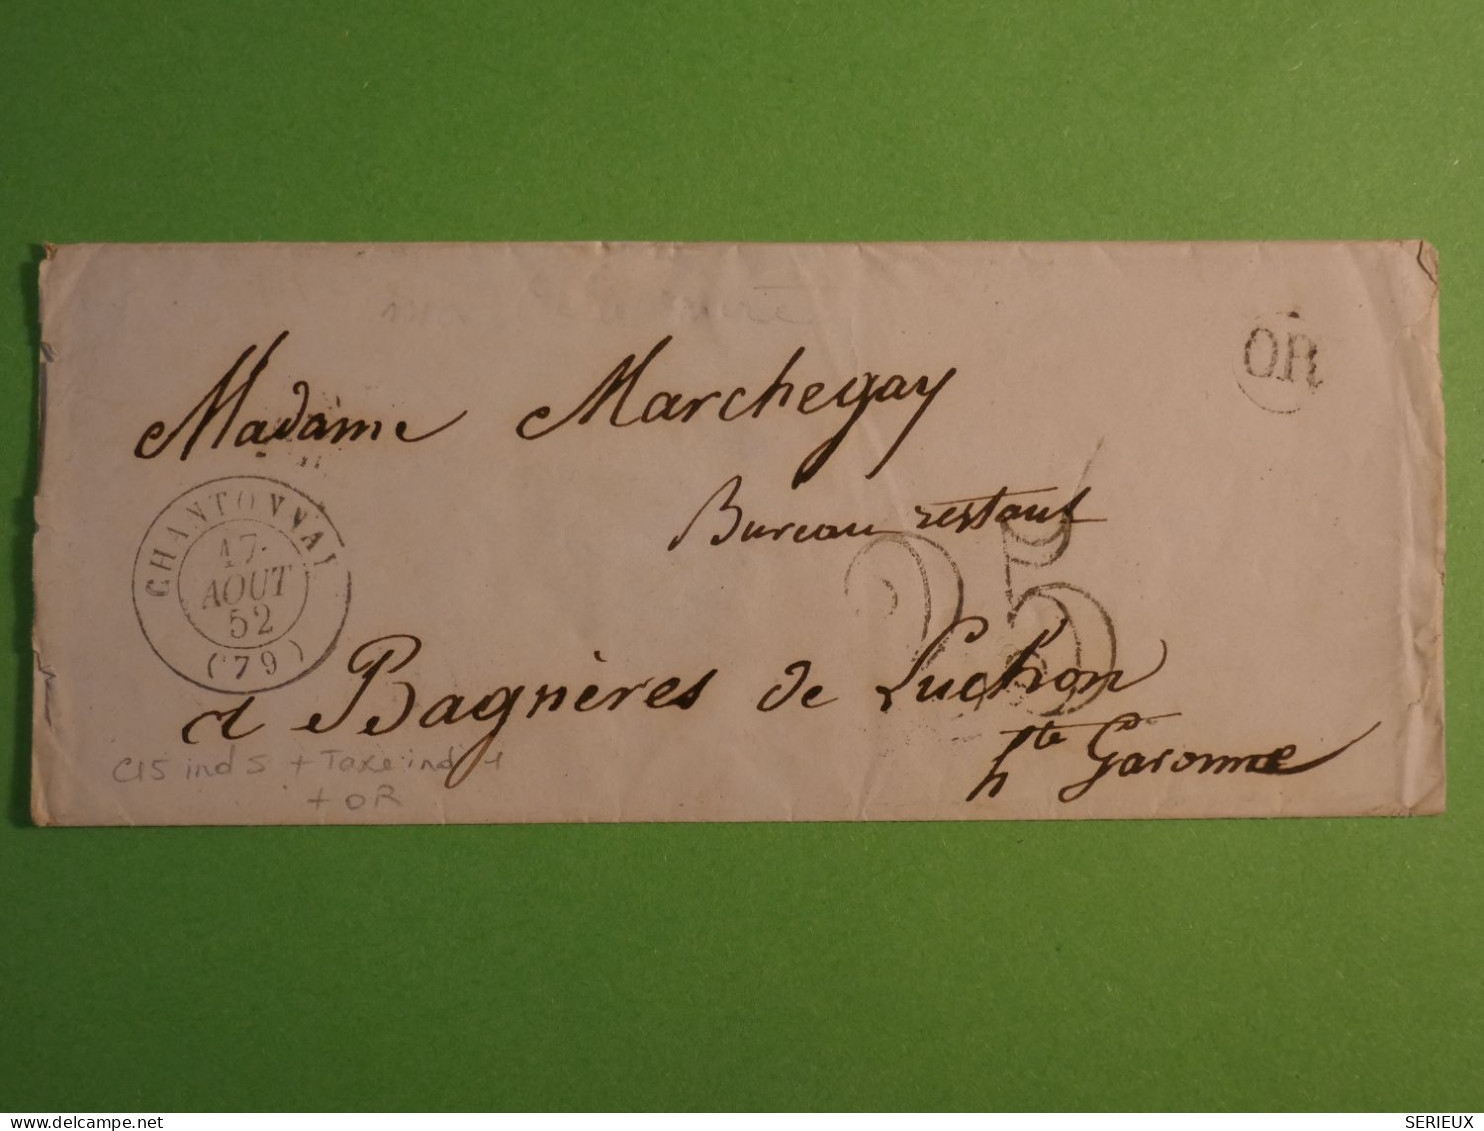 OR
Madame Marchegay
Bureau restant
CHANTONNAY
17
AOUT
52
(79)
25
à Bagnères de Luchon
hte Garonne
C15 ind 5 + Taxe ind 4
+ OR
SERIEUX